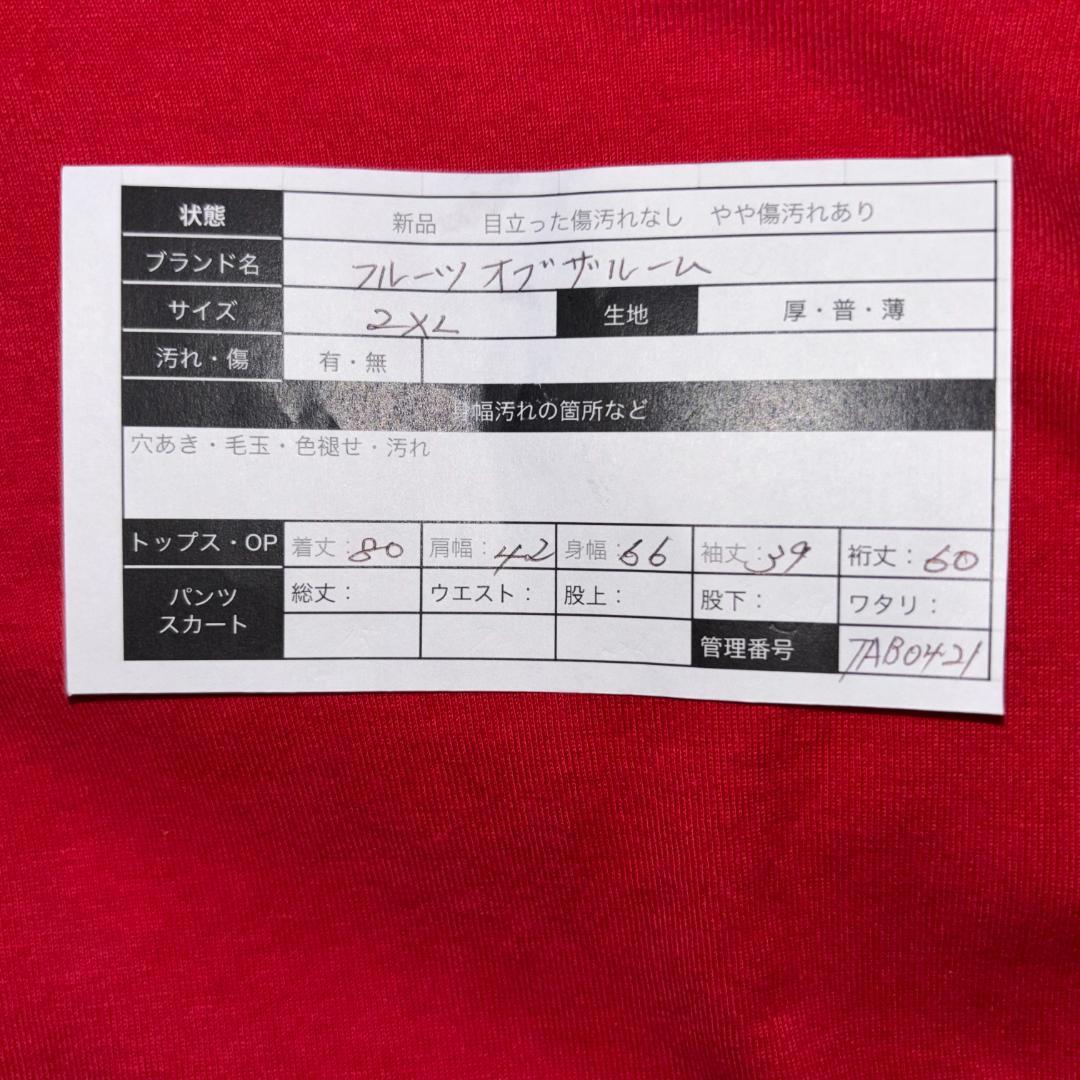 状態 新品 目立った傷汚れなし やや傷汚れあり
ブランド名 フルーツオブザルーム
サイズ 2XL 生地 厚・普・薄
汚れ・傷 有・無
身幅汚れの箇所など
穴あき・毛玉・色褪せ・汚れ
トップス・OP 着丈：80 肩幅：42 身幅：66 袖丈：39 裄丈：60
パンツ スカート 総丈： ウエスト： 股上： 股下： ワタリ：
管理番号 TAB0421